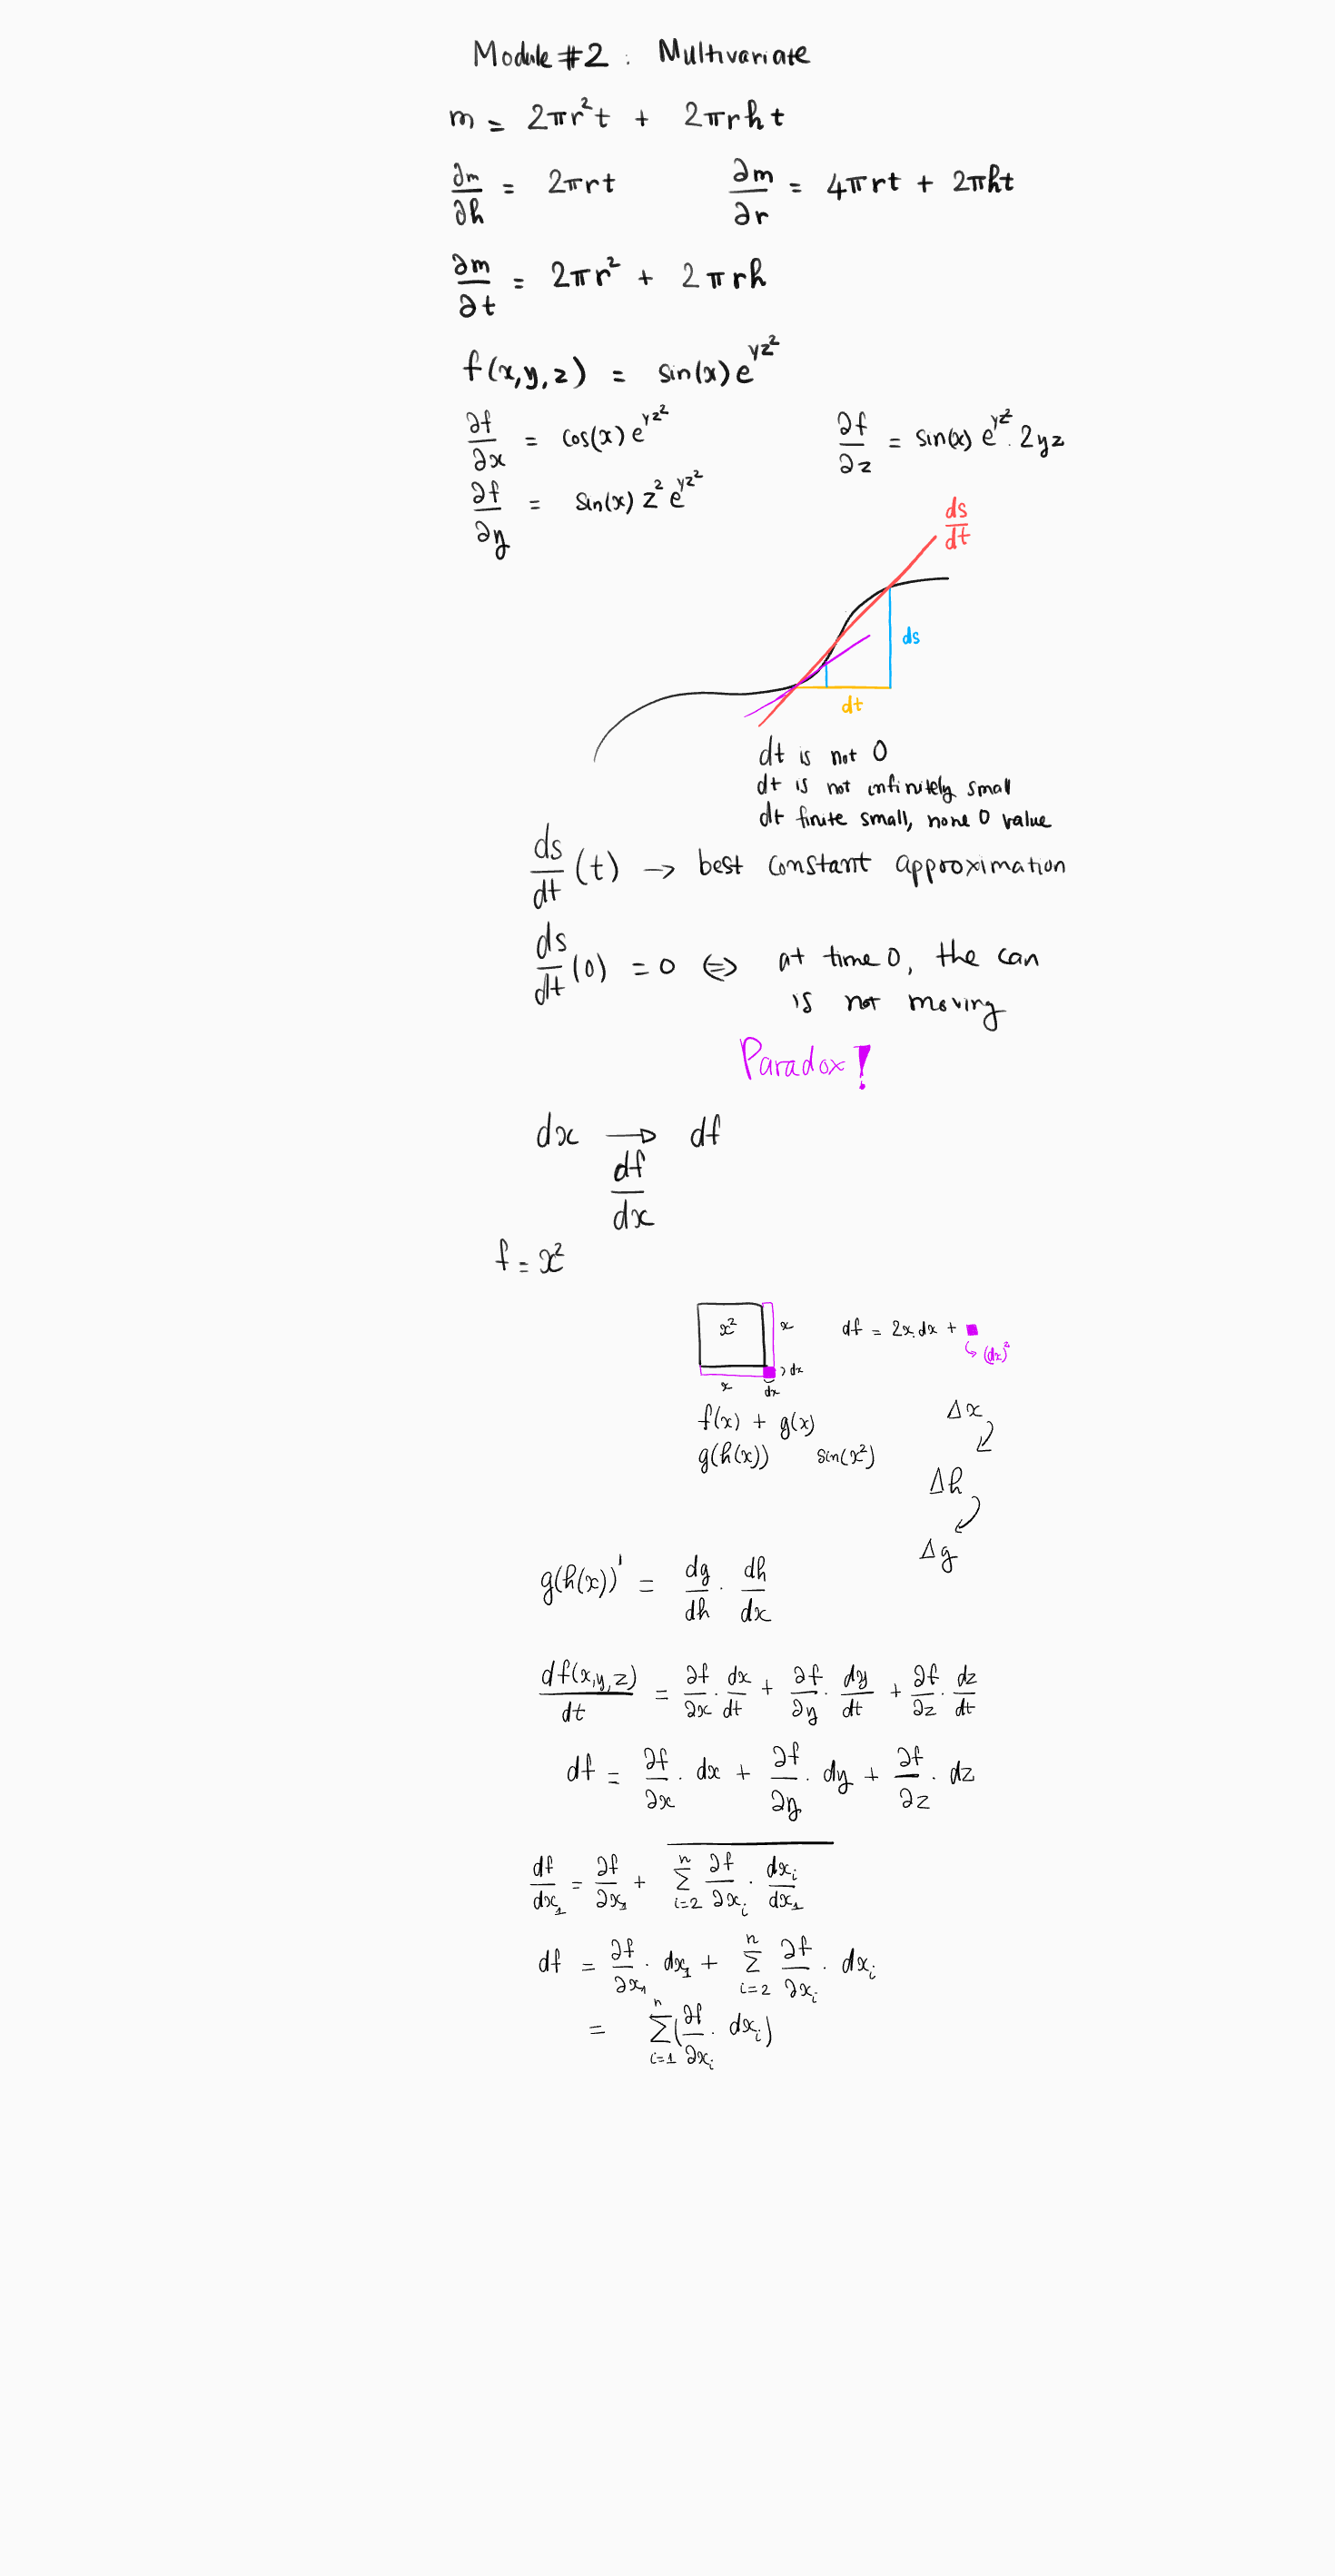 Module #2 : Multivariate
m = 2πr²t + 2πrht
∂m/∂h = 2πrt ∂m/∂r = 4πrt + 2πht
∂m/∂t = 2πr² + 2πrh
f(x,y,z) = sin(x)e^{yz²}
∂f/∂x = cos(x)e^{yz²} ∂f/∂z = sin(x)e^{yz²}.2yz
∂f/∂y = sin(x)z²e^{yz²}
ds/dt
ds
dt
dt is not 0
dt is not infinitely small
dt finite small, none 0 value
ds/dt (t) → best constant approximation
ds/dt (0) = 0 ⇔ at time 0, the car
is not moving
Paradox!
dx → df
df/dx
f = x²
x² x df = 2x.dx +
dx (dx)²
x dx
f(x) + g(x) Δx
g(h(x)) sin(x²)
Δh
Δg
g(h(x))' = dg/dh . dh/dx
df(x,y,z)/dt = ∂f/∂x . dx/dt + ∂f/∂y . dy/dt + ∂f/∂z . dz/dt
df = ∂f/∂x . dx + ∂f/∂y . dy + ∂f/∂z . dz
df/dx₁ = ∂f/∂x₁ + Σ_{i=2}^{n} ∂f/∂x_i . dx_i/dx₁
df = ∂f/∂x₁ . dx₁ + Σ_{i=2}^{n} ∂f/∂x_i . dx_i
= Σ_{i=1}^{n} (∂f/∂x_i . dx_i)